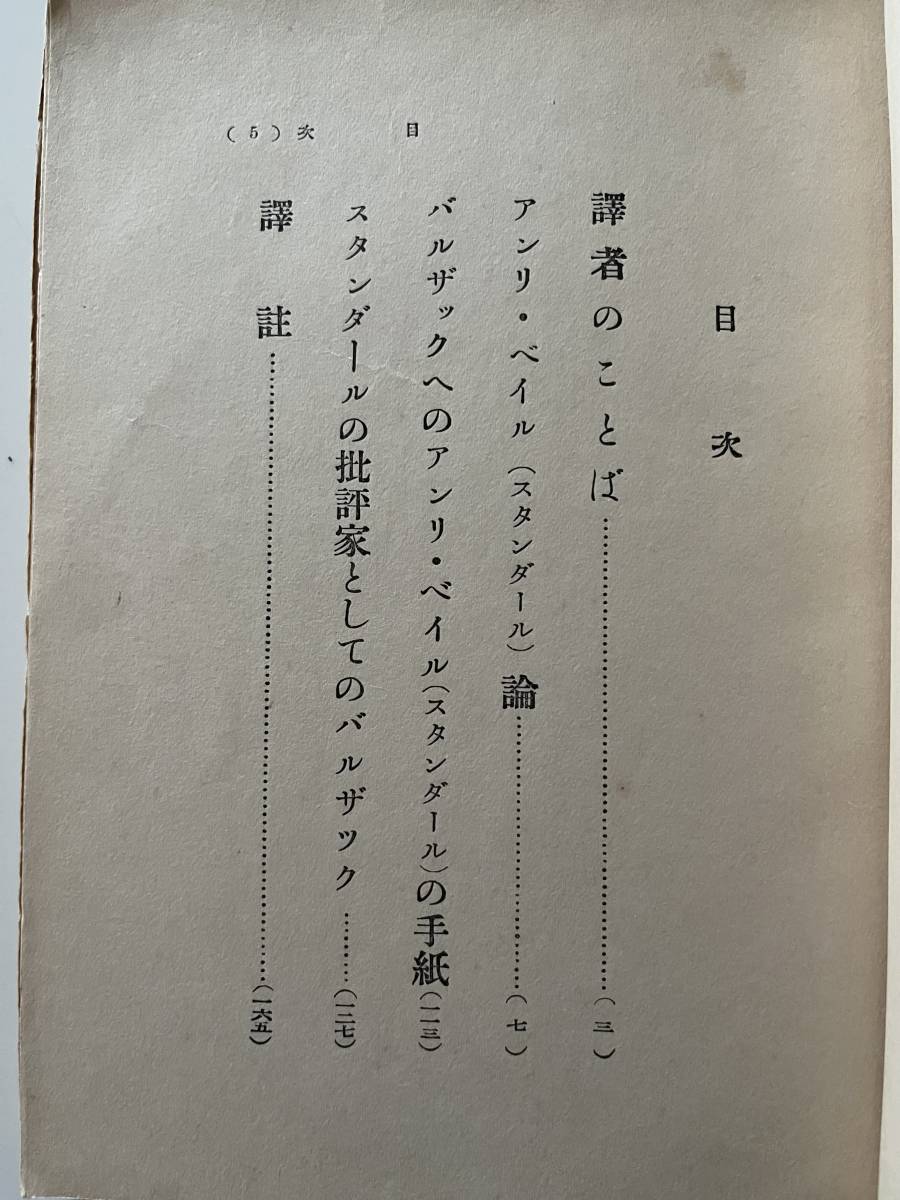 目次(5)
目次
譯者のことば……………………(三)
アンリ・ベイル(スタンダール)論……………………(七)
バルザックへのアンリ・ベイル(スタンダール)の手紙(一一三)
スタンダールの批評家としてのバルザック………(一二七)
譯註……………………(一六五)